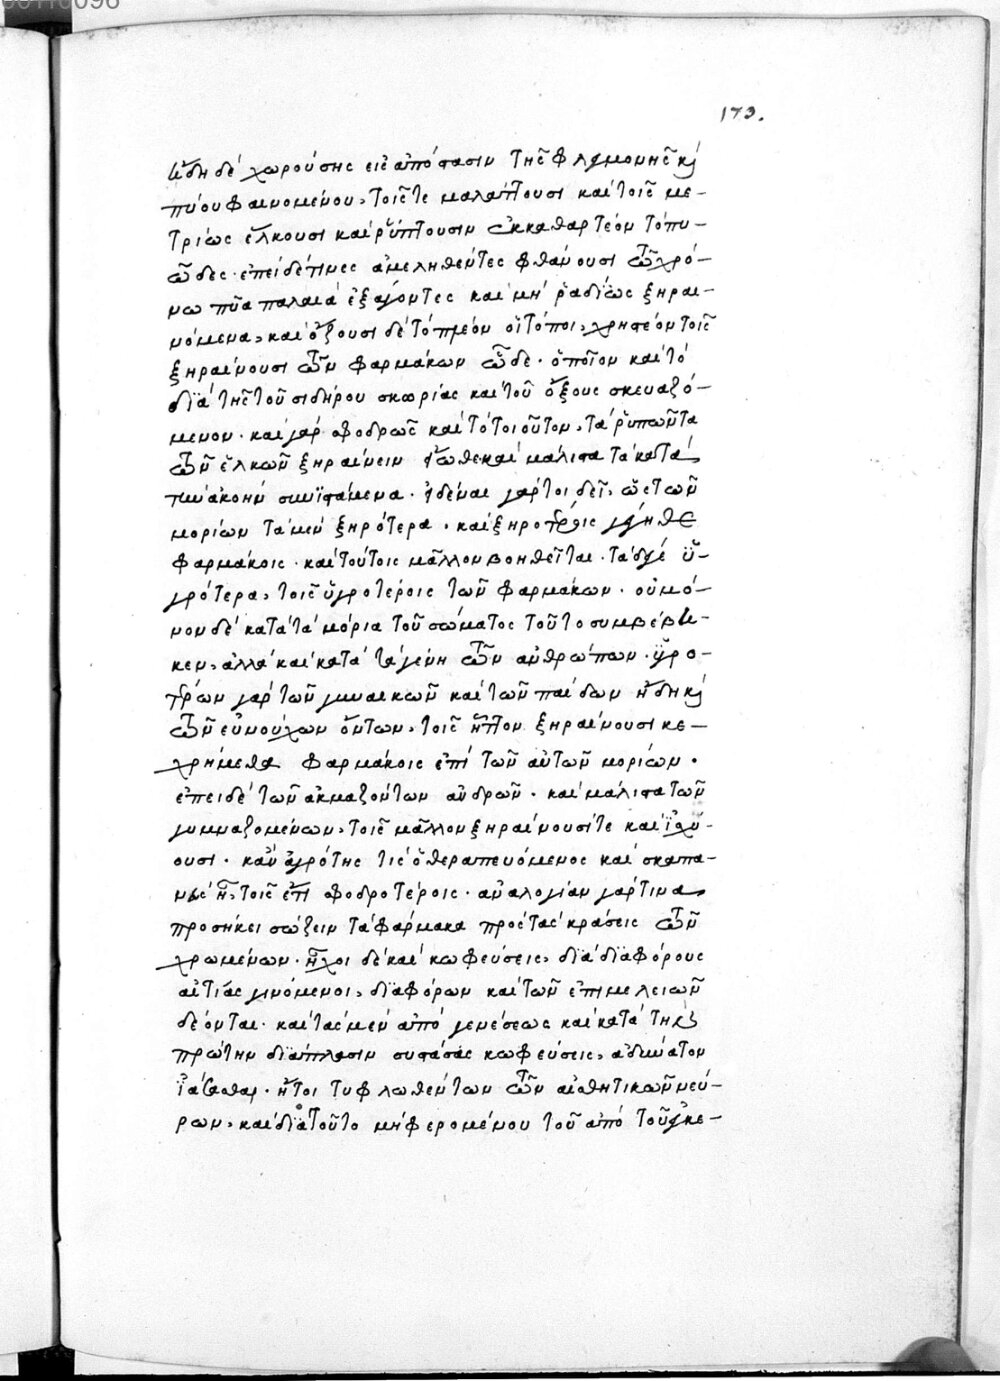 173.
ἤδη δὲ χωρούσης εἰς ἀπόστασιν τῆς φλεγμονῆς κ
πύου φαινομένου, τοῖς τε μαλάττουσι καὶ τοῖς με-
τρίως ἕλκουσι καὶ ῥύπτουσιν ἐκκαθαρτέον τὸ πυ-
ῶδες. ἐπεὶ δέ τινες ἀμεληθέντες φθάνουσι τῷ χρό-
νω πῦα παλαιὰ ἐξάγοντες καὶ μὴ ῥαδίως ξηραι-
νόμενα, καὶ ὄζουσι δὲ τὸ πλέον οἱ τόποι, χρηστέον τοῖς
ξηραίνουσι τῶν φαρμάκων ὧδε. ὁποῖον καὶ τὸ
διὰ τῆς τοῦ σιδήρου σκωρίας καὶ τοῦ ὄξους σκευαζό-
μενον. καὶ γὰρ σφοδρῶς καὶ τὸ τοιοῦτον, τὰ ῥυπῶντα
τῶν ἑλκῶν ξηραίνειν εἴωθε καὶ μάλιστα τὰ κατὰ
τὴν ἀκοὴν συνϊστάμενα. εἰδέναι γάρ τοι δεῖ, ὡς τῶν
μορίων τὰ μὲν ξηρότερα, καὶ ξηροτέροις γέγηθε
φαρμάκοις. καὶ τούτοις μᾶλλον βοηθεῖται. τὰ δέ γε ὑ-
γρότερα, τοῖς ὑγροτέροις τῶν φαρμάκων. οὐ μό-
νον δὲ κατὰ τὰ μόρια τοῦ σώματος τοῦτο συμβέβη-
κεν, ἀλλὰ καὶ κατὰ τὰ γένη τῶν ἀνθρώπων. ὑγρο-
τέρων γὰρ τῶν γυναικῶν καὶ τῶν παίδων ἤδη κ
τῶν εὐνούχων ὄντων, τοῖς ἧττον ξηραίνουσι κε-
χρήμεθα φαρμάκοις ἐπὶ τῶν αὐτῶν μορίων.
ἐπεὶ δὲ τῶν ἀκμαζόντων ἀνδρῶν. καὶ μάλιστα τῶν
γυμναζομένων, τοῖς μᾶλλον ξηραίνουσί τε καὶ ἰσχύ-
ουσι. κἂν ἀγρότης τις ὁ θεραπευόμενος καὶ σκαπα-
νεὺς ᾖ, τοῖς ἔτι σφοδροτέροις. ἀναλογίαν γάρ τινα
προσήκει σώζειν τὰ φάρμακα πρὸς τὰς κράσεις τῶν
χρωμένων. ἦχοι δὲ καὶ κωφεύσεις, διὰ διαφόρους
αἰτίας γινόμενοι, διαφόρων καὶ τῶν ἐπιμελειῶν
δέονται. καὶ τὰς μὲν ἀπὸ γενέσεως καὶ κατὰ τὴν
πρώτην διάπλασιν συστάσας κωφεύσεις, ἀδύνατον
ἰάσασθαι. ἤτοι τυφλωθέντων τῶν αἰσθητικῶν νεύ-
ρων, καὶ διὰ τοῦτο μὴ φερομένου τοῦ ἀπὸ τοῦ ἐγκε-